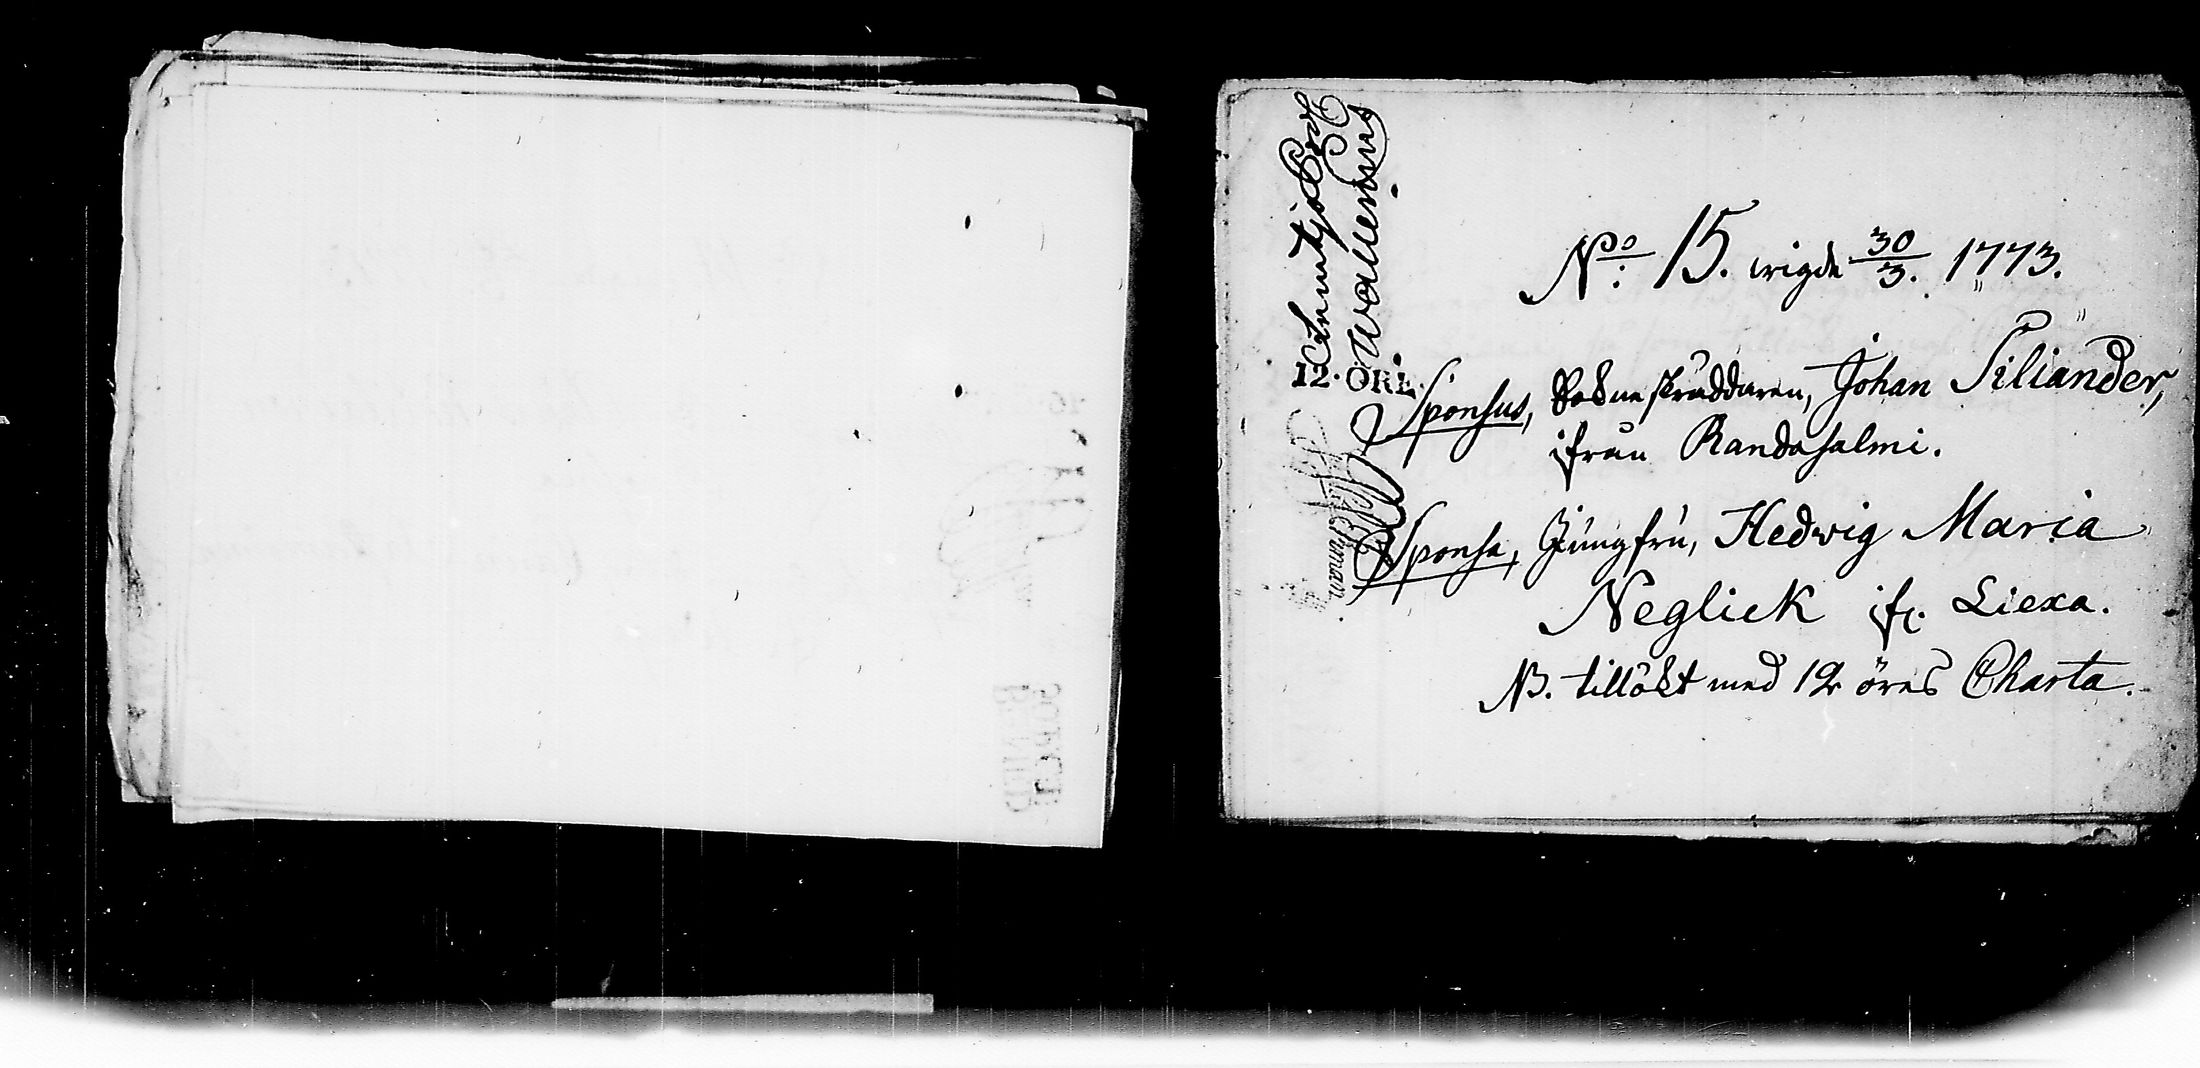 No: 15. wigde 30/3. 1773.
Sponsus, Sokneskräddaren, Johan Siliander,
ifrån Randasalmi.
Sponsa, Jungfru, Hedwig Maria
Neglick ifr. Liexa.
NB. tillökt med 12 öres Charta.
12. ÖRE.
Wallenius